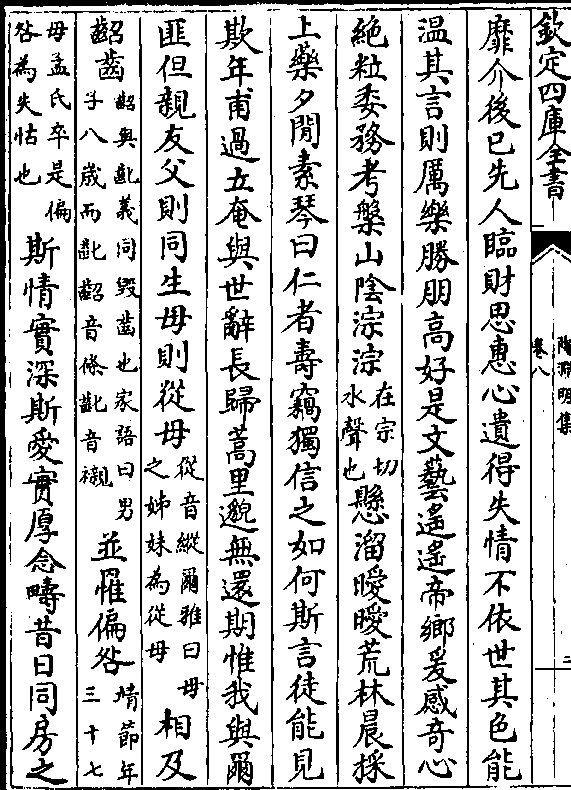 欽定四庫全書
陶淵明集
卷八
三
靡介後已先人臨財思惠心遺得失情不依世其色能
温其言則厲樂勝朋高好是文藝遙遙帝鄉爰感奇心
絶粒委務考槃山陰淙淙在宗切水聲也懸溜曖曖荒林晨採
上藥夕閒素琴曰仁者壽竊獨信之如何斯言徒能見
欺年甫過立奄與世辭長歸蒿里邈無還期惟我與爾
匪但親友父則同生母則從母從音縱爾雅曰母之姊妹為從母相及
齠齒齠與齓義同毀齒也家語曰男子八歲而齓齠音條齓音襯並罹偏咎靖節年三十七
母孟氏卒是偏咎為失怙也斯情實深斯愛實厚念疇昔日同房之